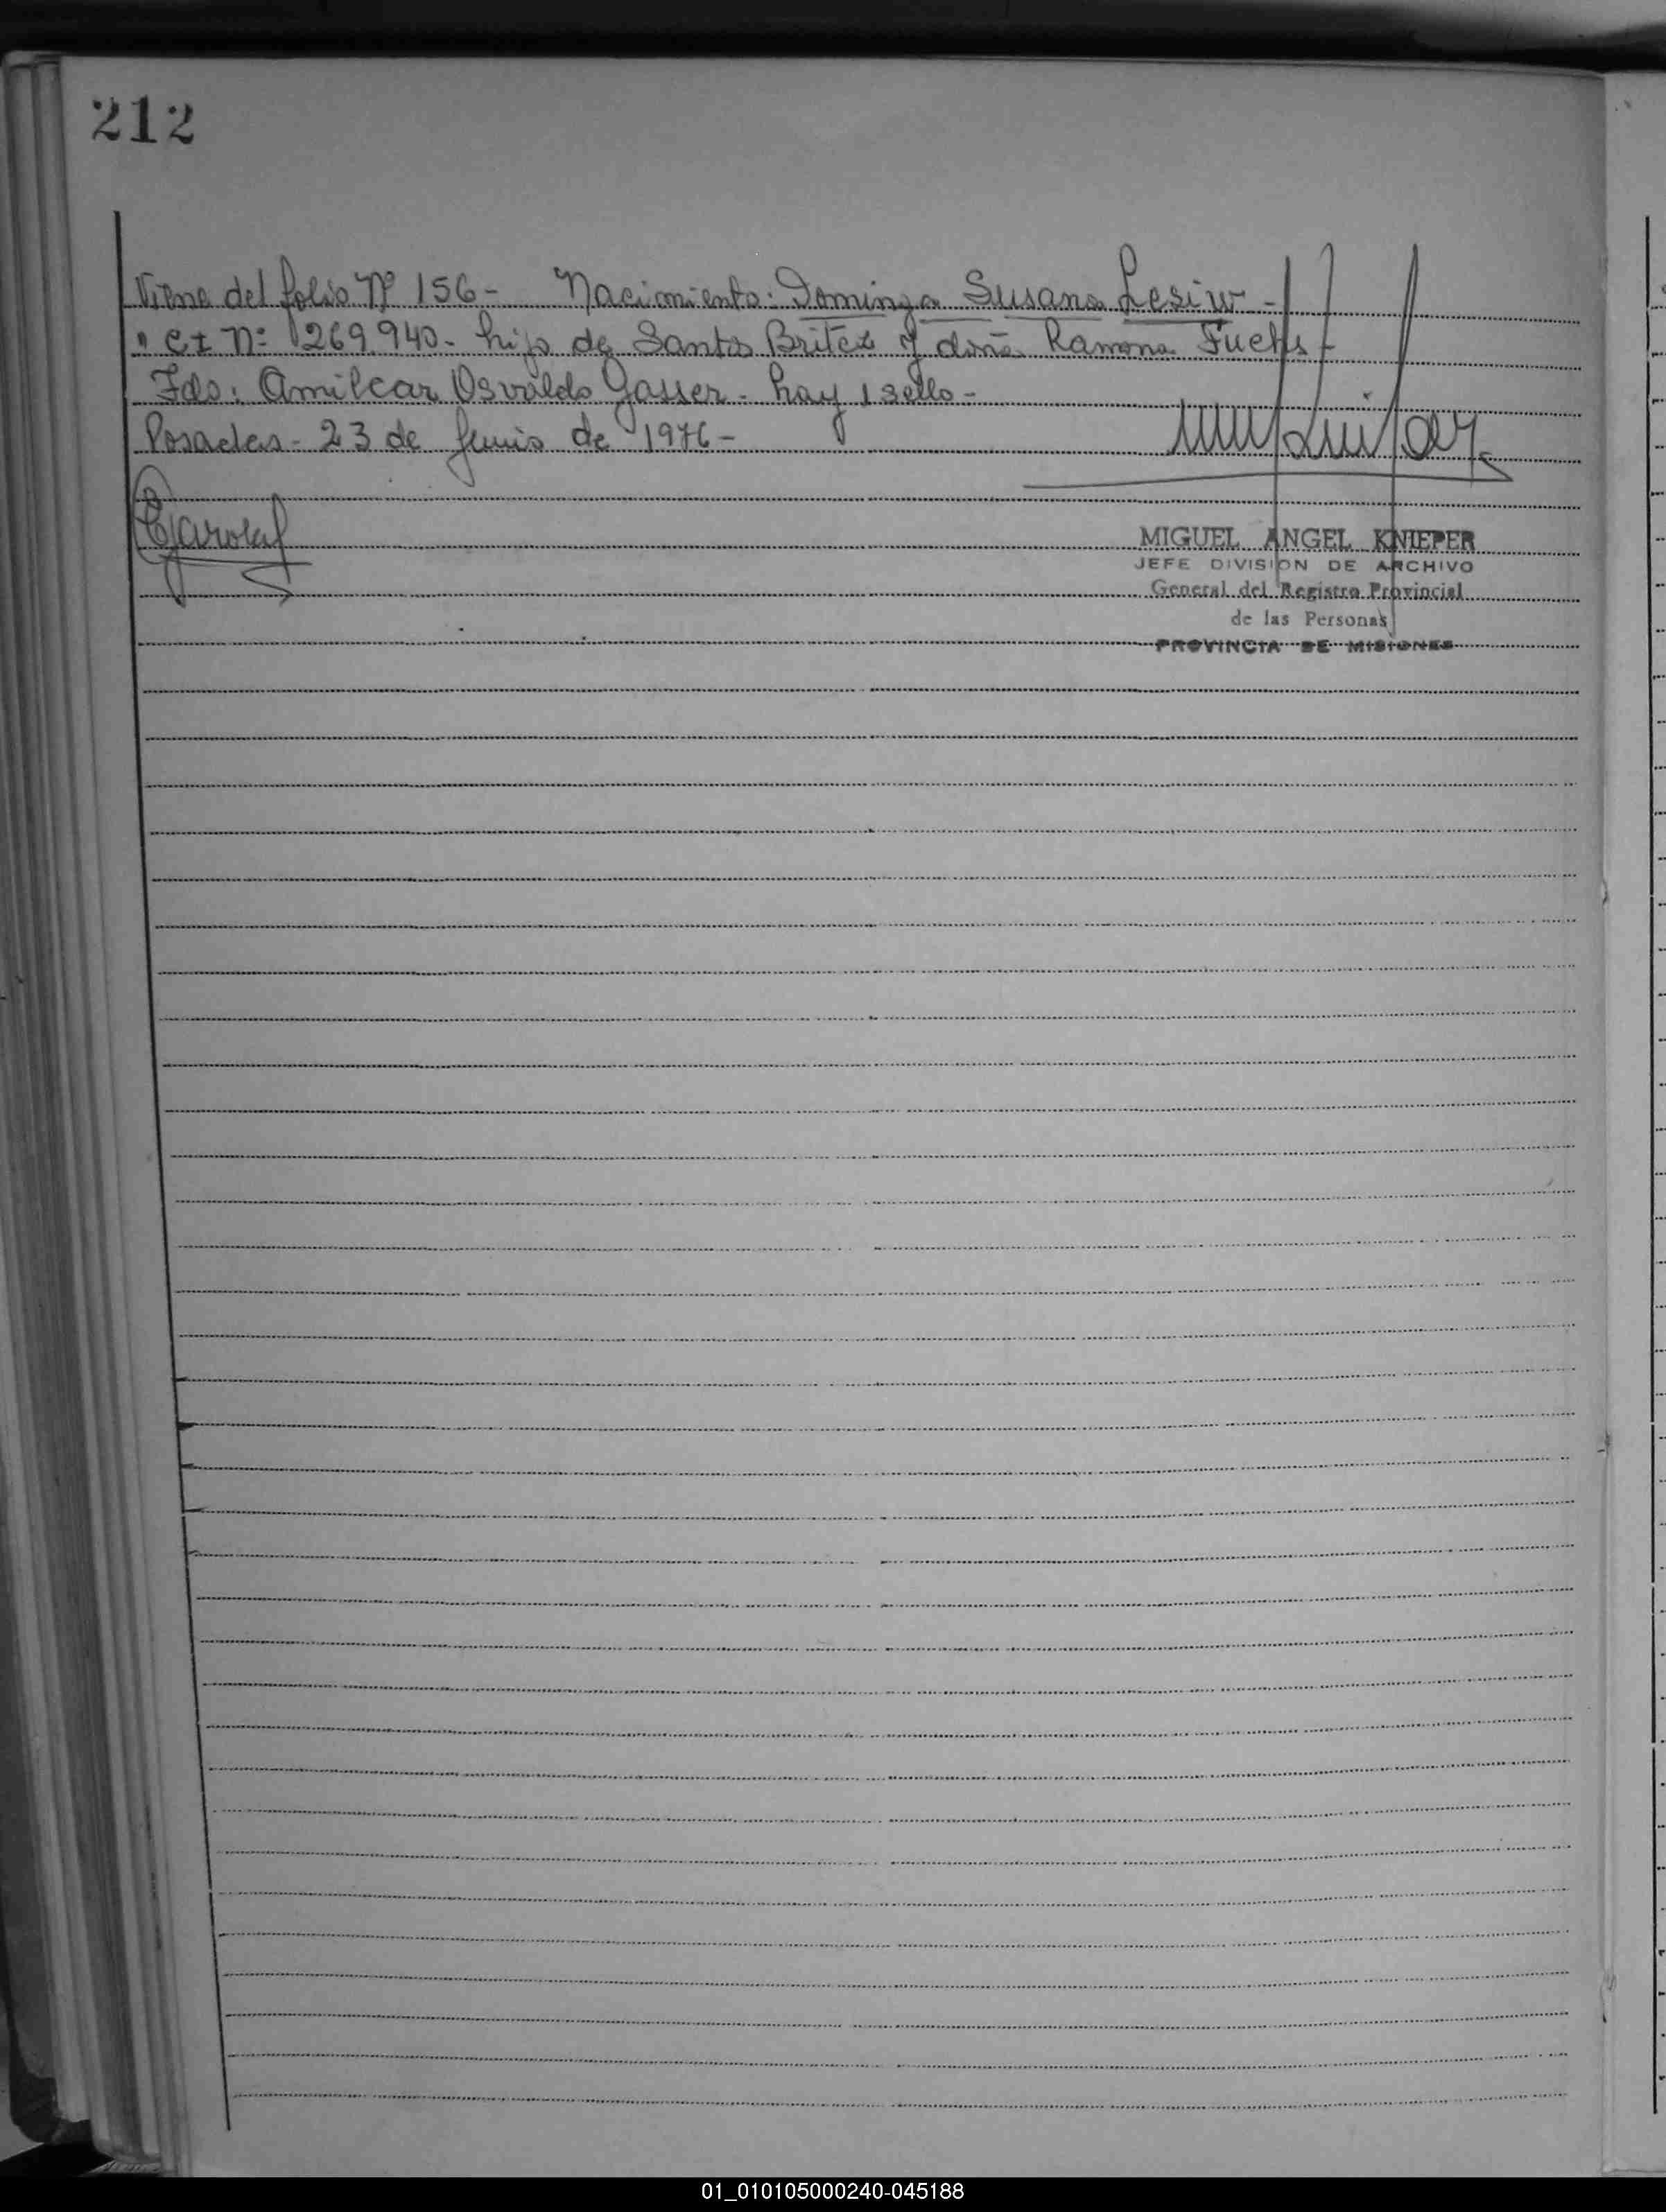 212
Viene del folio Nº 156 - Nacimiento: Dominga Susana Lesiw -
" CI Nº 269.940 - hijo de Santos Britez y doña Ramona Fuchs -
Fdo: Amilcar Osvaldo Gasser - hay 1 sello -
Posadas - 23 de Junio de 1976 -
MIGUEL ANGEL KNIEPER
JEFE DIVISION DE ARCHIVO
General del Registro Provincial
de las Personas
PROVINCIA DE MISIONES
01_010105000240-045188